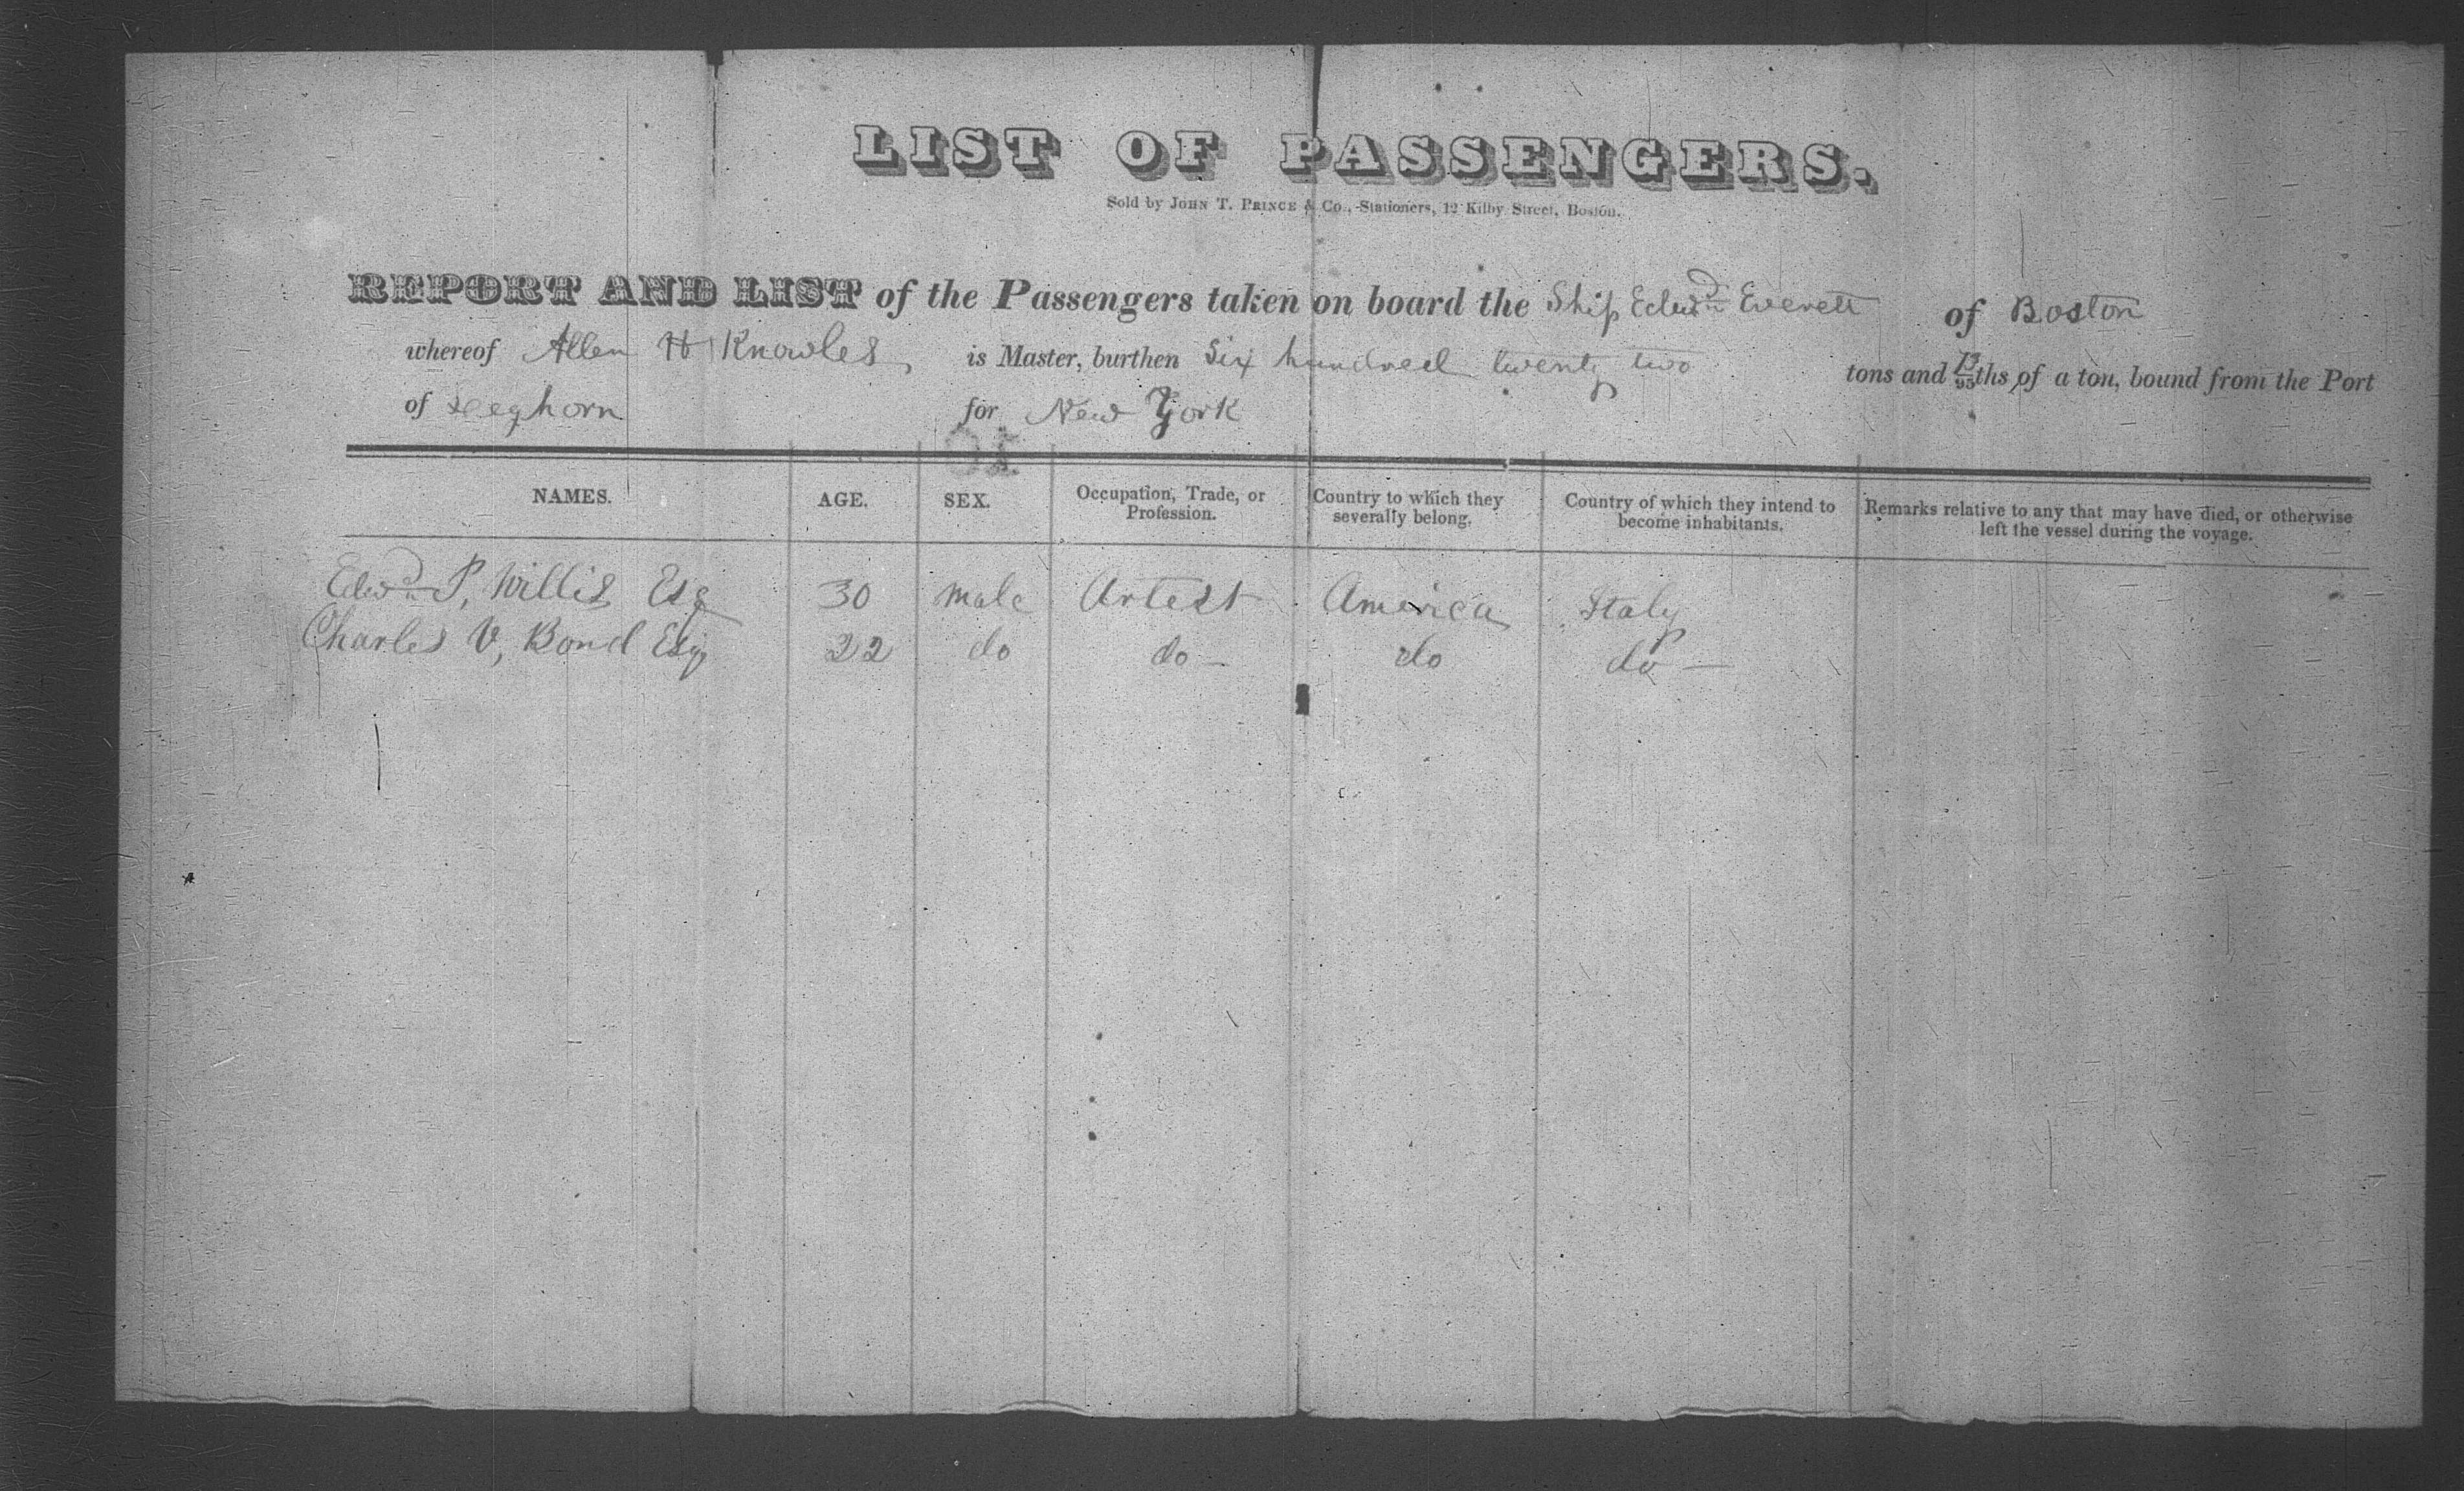 LIST OF PASSENGERS.
Sold by JOHN T. PRINCE & Co., Stationers, 12 Kilby Street, Boston.
REPORT AND LIST of the Passengers taken on board the Ship Edwd Everett of Boston
whereof Allen H Knowles, is Master, burthen Six hundred twenty two tons and 13/95ths of a ton, bound from the Port
of Leghorn for New York
NAMES. AGE. SEX. Occupation, Trade, or Profession. Country to which they severally belong. Country of which they intend to become inhabitants. Remarks relative to any that may have died, or otherwise left the vessel during the voyage.
Edwd P, Willis Esq 30 male Artest America Italy
Charles V, Bond Esq 22 do do - do do -